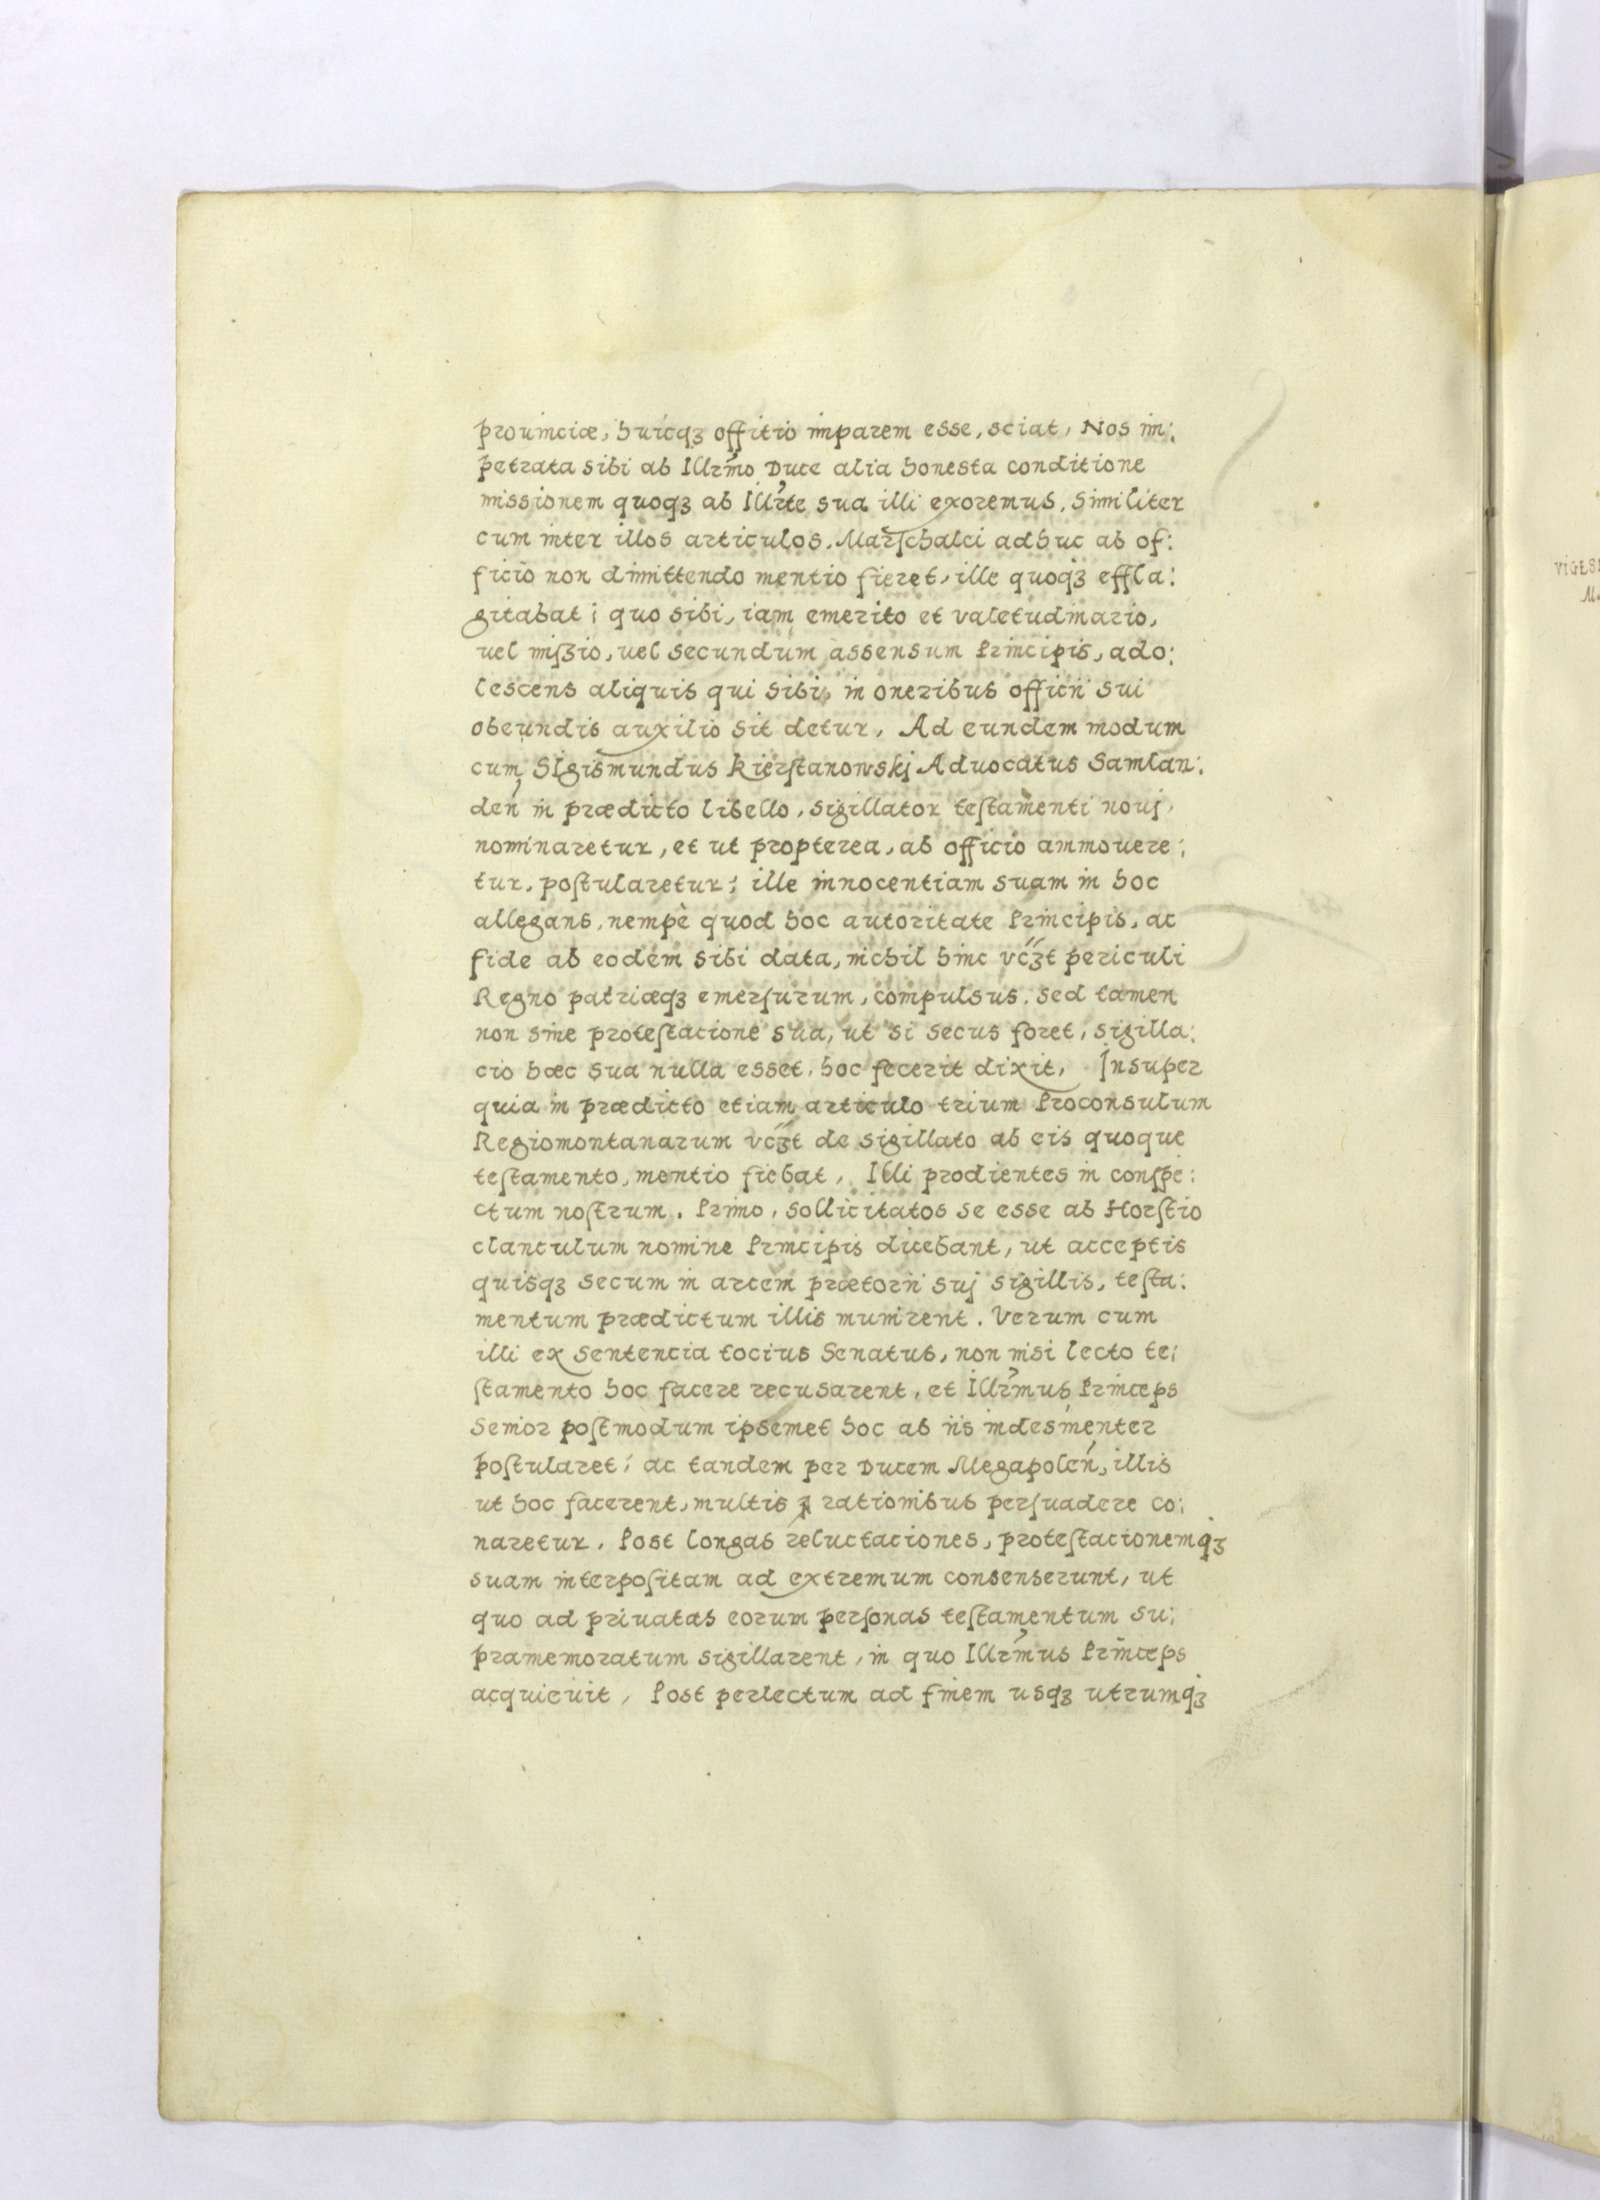 prouinciæ, huicqꝫ offitio imparem esse, sciat, Nos im:
petrata sibi ab Illrm̃o Duce alia honesta conditione
missionem quoqꝫ ab Illrt̃e sua illi exoremus. Similiter
cum inter illos articulos, Marſchalci adhuc ab of:
ficio non dimittendo mentio fieret, ille quoqꝫ effla:
gitabat; quo sibi, iam emerito et valetudinario,
uel miſʒio, uel secundum assensum Principis, ado:
lescens aliquis qui sibi, in oneribus officij sui
obeundis auxilio sit detur, Ad eundem modum
cum SIgismundus Kierſtanowskj Aduocatus Samlan:
den̄ in prædicto libello, sigillator teſtamenti nouj,
nominaretur, et ut propterea, ab officio ammouere:
tur, poſtularetur; ille innocentiam suam in hoc
allegans, nempè quod hoc autoritate Principis, ac
fide ab eodem sibi data, nichil hinc vcꝫt periculi
Regno patriæqꝫ emerſurum, compulsus. sed tamen
non sine proteſtacione sua, ut si secus foret, sigilla:
cio hæc sua nulla esset, hoc fecerit dixit, Insuper
quia in prædicto etiam articulo trium Proconsulum
Regiomontanarum vcꝫt de sigillato ab eis quoque
teſtamento, mentio fiebat, Illi prodientes in conſpe:
ctum noſtrum. Primo, sollicitatos se esse ab Horſtio
clanculum nomine Principis dicebant, ut acceptis
quisqꝫ secum in arcem prætorij suj sigillis, teſta:
mentum prædictum illis munirent. Verum cum
illi ex sentencia tocius Senatus, non nisi lecto te:
ſtamento hoc facere recusarent, et Illrm̃us Princeps
Senior poſtmodum ipsemet hoc ab iis indesinenter
poſtularet; ac tandem per Ducem Megapolen̄, illis
ut hoc facerent, multis rationibus perſuadere co:
naretur. Post longas reluctaciones, proteſtacionemqꝫ
suam interpoſitam ad extremum consenserunt, ut
quo ad priuatas eorum perſonas teſtamentum su:
pramemoratum sigillarent, in quo Illrm̃us Princeps
acquieuit, Post perlectum ad finem usqꝫ utrumqꝫ